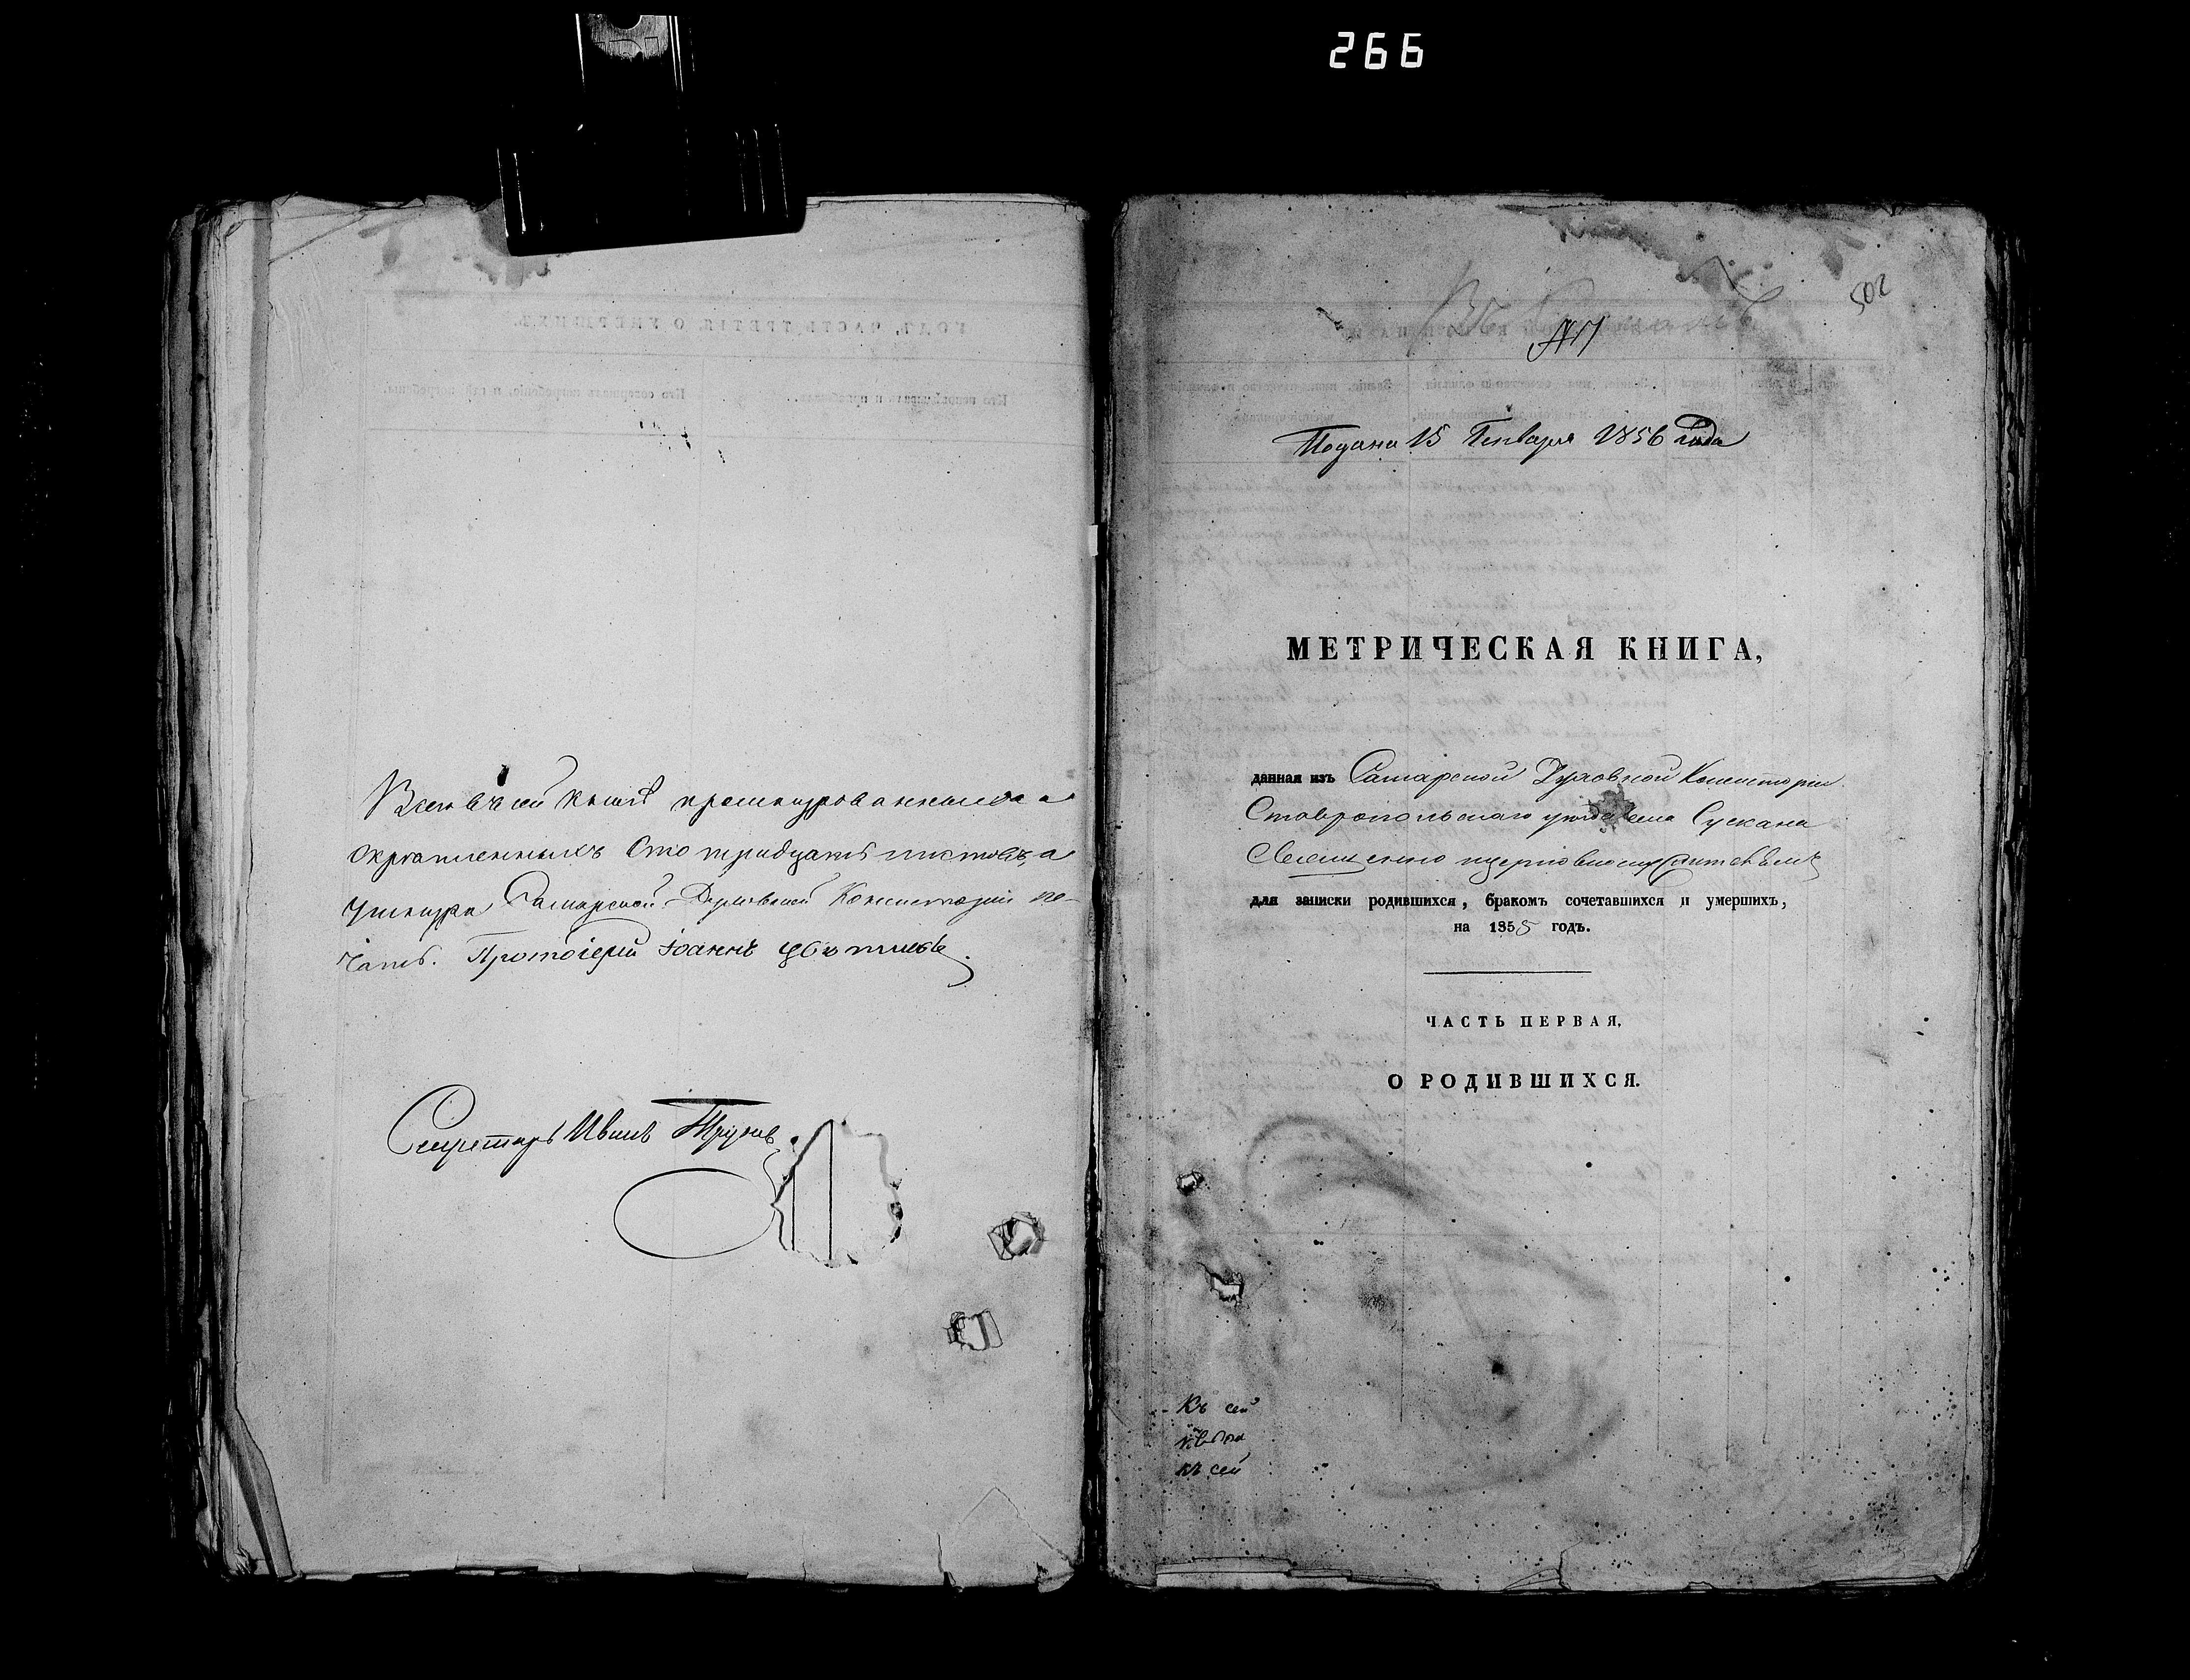 266
Всего въ сей книгѣ прошнурованныхъ и
скрѣпленныхъ Сто тридцать листовъ, а
у шнура Самарской Духовной Консисторіи пе-
чать. Протоіерей Іоаннъ
Секретарь Иванъ
502
№17
Подана 15 Генваря 1856 года
МЕТРИЧЕСКАЯ КНИГА,
данная изъ Самарской Духовной Консисторіи
Ставропольскаго уѣзда села Сускана
Священно церковнослужителямъ
для записки родившихся, бракомъ сочетавшихся и умершихъ,
на 1855 годъ.
ЧАСТЬ ПЕРВАЯ,
О РОДИВШИХСЯ.
Къ сей
къ сей